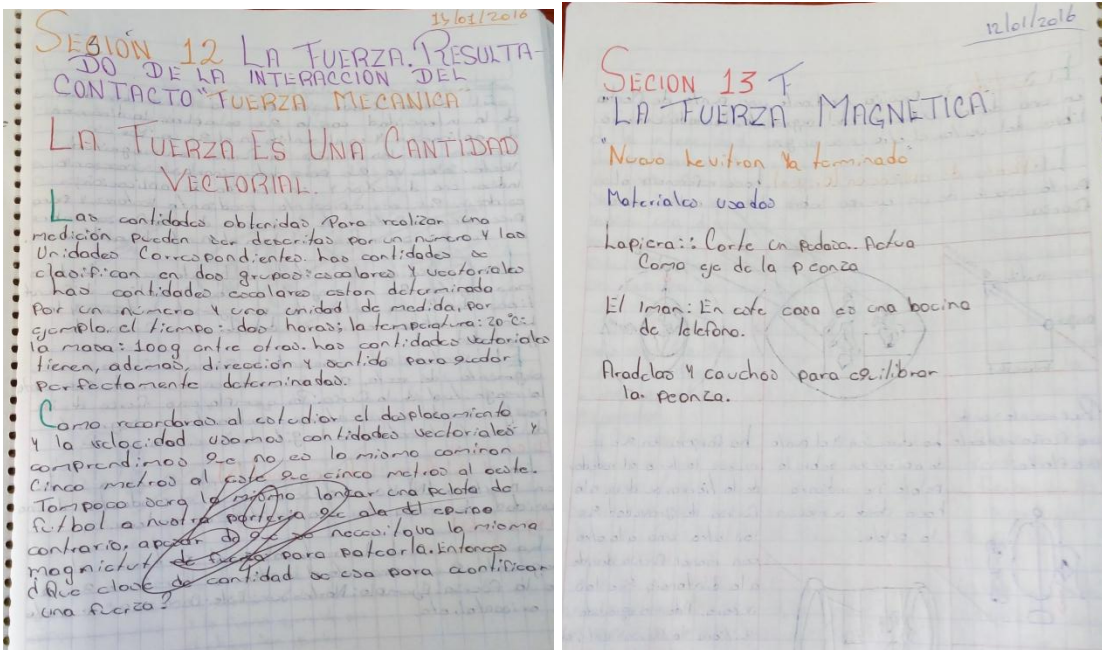 15/01/2016
SESIÓN 12 LA FUERZA. RESULTA-
DO DE LA INTERACCION DEL
CONTACTO "FUERZA MECANICA"
LA FUERZA ES UNA CANTIDAD
VECTORIAL.
Las cantidades obtenidas Para realizar una
medición pueden ser descritas por un número Y las
Unidades Correspondientes. Las cantidades se
clasifican en dos grupos: escalares y vectoriales
Las cantidades escalares estan determinado
Por un número y una unidad de medida, por
ejemplo, el tiempo: dos horas; la temperatura: 20°C:
la masa: 100g entre otras. Las cantidades vectoriales
tienen, ademas, dirección Y sentido para quedar
perfectamente determinadas.
Como recordaras al estudiar el desplacamiento
Y la velocidad usamos cantidades vectoriales Y
comprendimos que no es lo mismo caminan
Cinco metros al este que cinco metros al oeste.
Tampoco sera lo mismo lanzar una pelota de
futbol a nuestra porteria que ala del equipo
contrario, apezar de que se necesitqua la misma
magnictud de fuerza para patearla. Entonces
¿Que clase de cantidad se usa para cuntificar
una fuerza?
12/01/2016
SECION 13 F
"LA FUERZA MAGNETICA"
"Nuevo Levitron Ya terminado"
Materiales usados
Lapicra:: Corte un Pedaso. Actua
Como eje de la peonza
El Iman: En este caso es una bocina
de telefono.
Aradelas Y cauchos para equilibrar
la peonza.